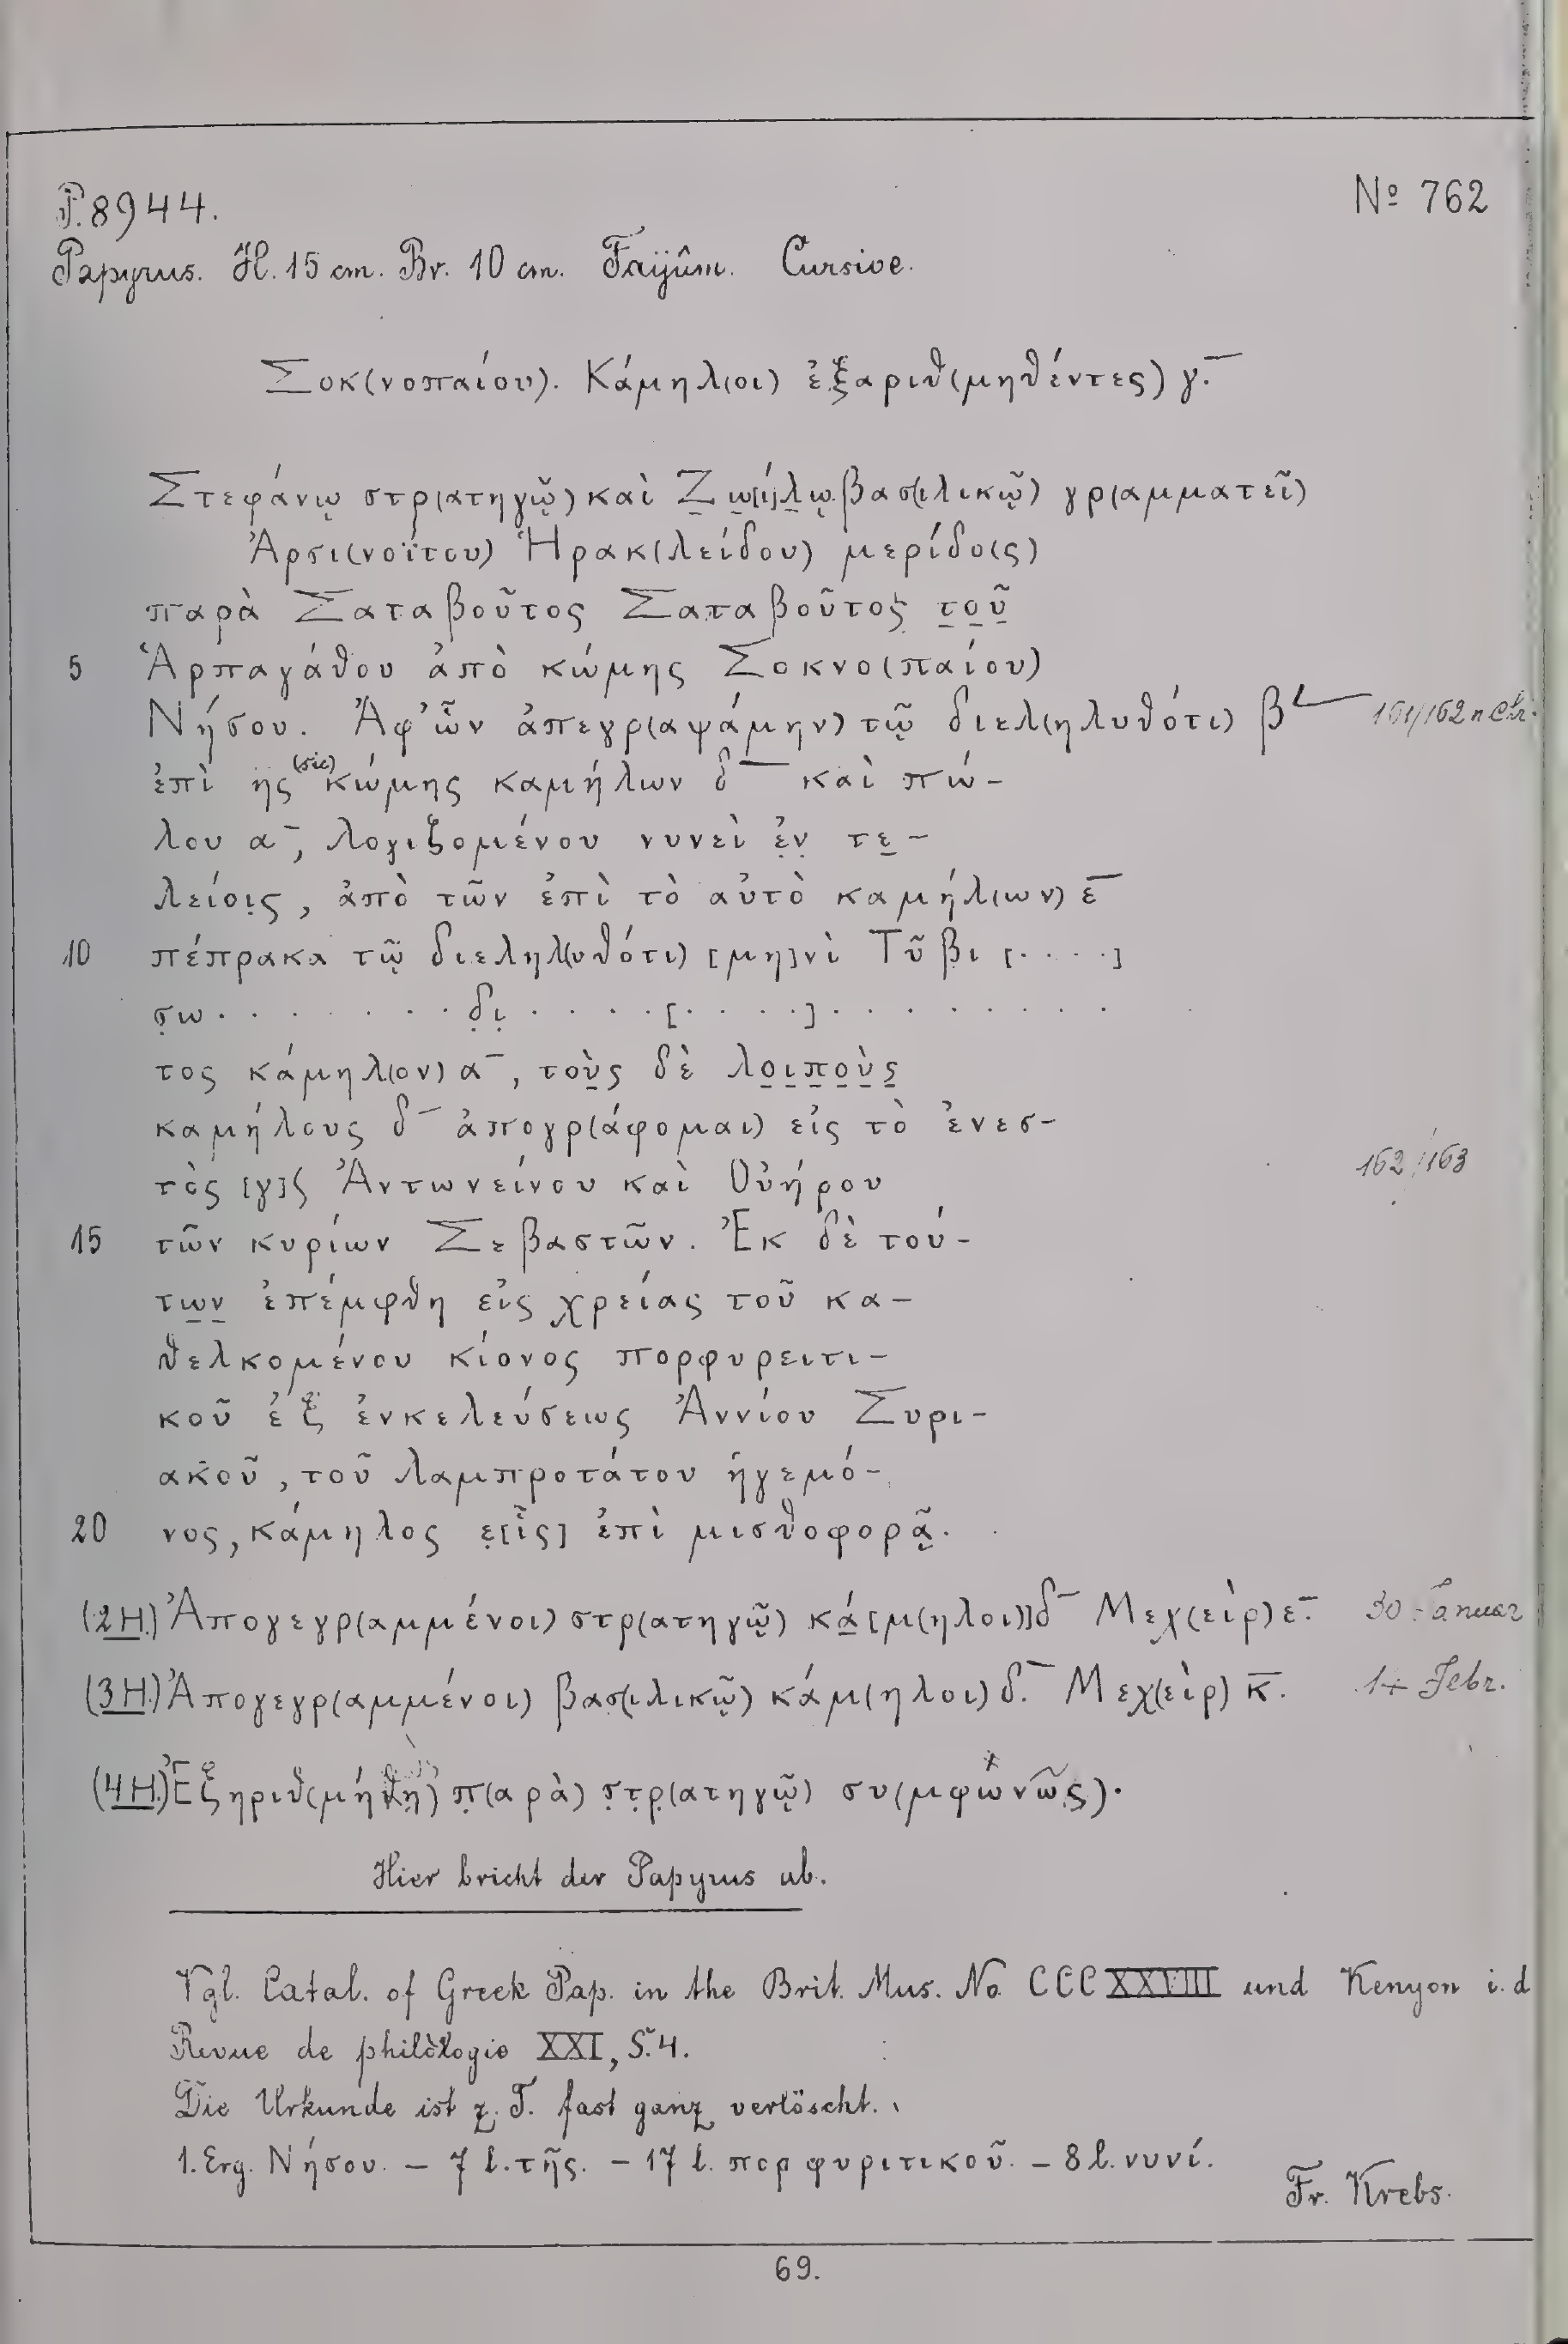 P. 8944.
Nº 762
Papyrus. H. 15 cm. Br. 10 cm. Faijûm. Cursive.
Σοκ(νοπαίου). Κάμηλ(οι) ἐξαριθ(μηθέντες) γ̅.
Στεφάνῳ στρ(ατηγῷ) καὶ Ζω[ί]λῳ βασ(ιλικῷ) γρ(αμματεῖ)
Ἀρσι(νοΐτου) Ἡρακ(λείδου) μερίδο(ς)
παρὰ Σαταβοῦτος Σαταβοῦτος τοῦ
5 Ἁρπαγάθου ἀπὸ κώμης Σοκνο(παίου)
Νήσου. Ἀφ’ ὧν ἀπεγρ(αψάμην) τῷ διελ(ηλυθότι) β 161/162 n Chr.
ἐπὶ ης (sic) κώμης καμήλων δ̅ καὶ πώ-
λου α̅, λογιζομένου νυνεὶ ἐν τε-
λείοις, ἀπὸ τῶν ἐπὶ τὸ αὐτὸ καμήλ(ων) ε̅
10 πέπρακα τῷ διεληλ(υθότι) [μη]νὶ Τῦβι [. . . .]
σω . . . . . . . δι . . . . [. . . .] . . . . . . . .
τος κάμηλ(ον) α̅, τοὺς δὲ λοιποὺς
καμήλους δ̅ ἀπογρ(άφομαι) εἰς τὸ ἐνεσ-
τὸς [γ]ς Ἀντωνείνου καὶ Οὐήρου 162/163
15 τῶν κυρίων Σεβαστῶν. Ἐκ δὲ τού-
των ἐπέμφθη εἰς χρείας τοῦ κα-
θελκομένου κίονος πορφυρειτι-
κοῦ ἐξ ἐνκελεύσεως Ἀννίου Συρι-
ακοῦ, τοῦ λαμπροτάτου ἡγεμό-
20 νος, κάμηλος ε[ἷς] ἐπὶ μισθοφορᾷ.
(2 H.) Ἀπογεγρ(αμμένοι) στρ(ατηγῷ) κά[μ(ηλοι)] δ̅ Μεχ(εὶρ) ε̅. 30 Januar
(3 H.) Ἀπογεγρ(αμμένοι) βασ(ιλικῷ) κάμ(ηλοι) δ̅. Μεχ(εὶρ) κ̅. 14 Febr.
(4 H.) Ἐξηριθ(μήθη) π(αρὰ) στρ(ατηγῷ) συ(μφώνως).
Hier bricht der Papyrus ab.
Vgl. Catal. of Greek Pap. in the Brit. Mus. No. CCCXXVIII und Kenyon i. d
Revue de philologie XXI, S. 4.
Die Urkunde ist z. T. fast ganz verlöscht.
1. Erg. Νήσου. – 7 l. τῆς. – 17 l. πορφυριτικοῦ. – 8 l. νυνί.
Fr. Krebs.
69.